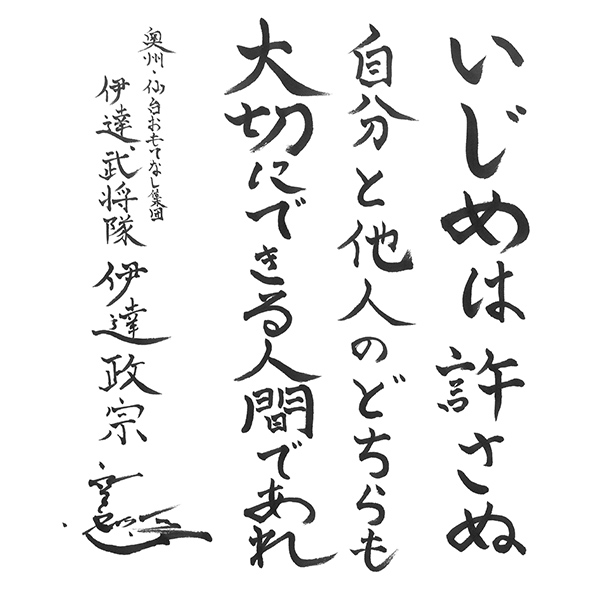 いじめは許さぬ
自分と他人のどちらも
大切にできる人間であれ
奥州・仙台おもてなし集団
伊達武将隊 伊達政宗